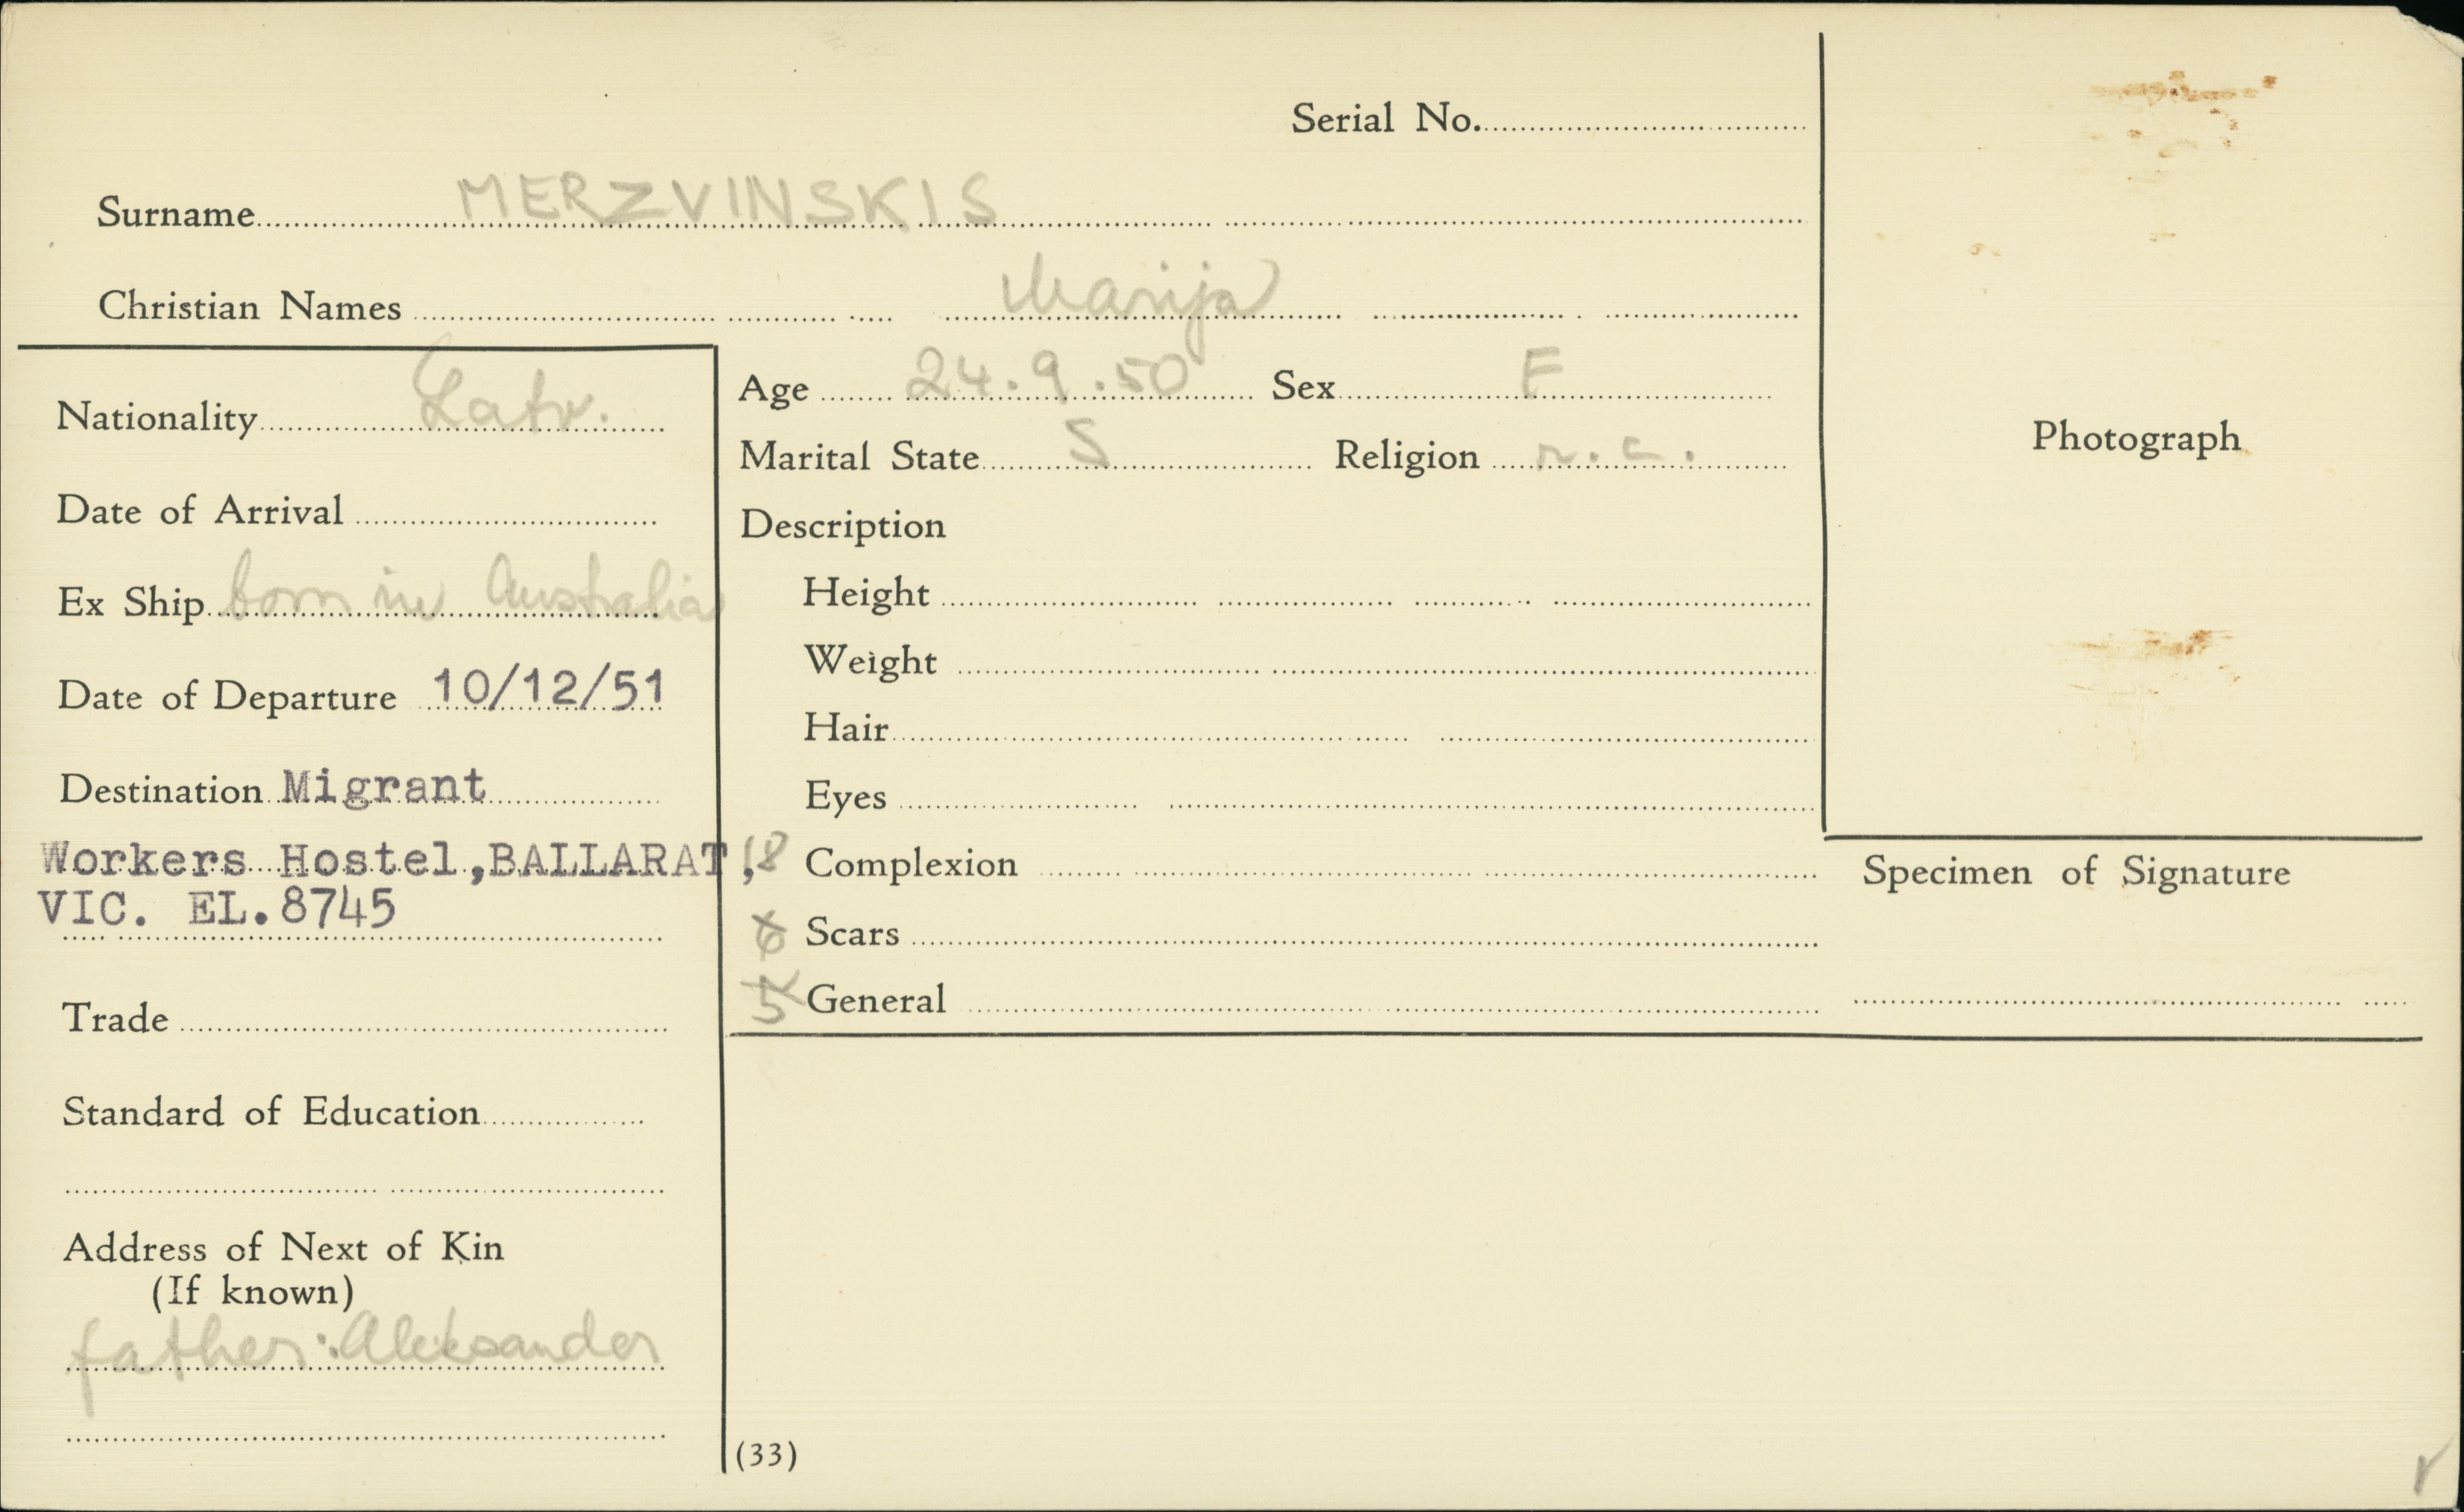 Serial No.
Surname MERZVINSKIS
Christian Names Marija
Nationality Latv.
Date of Arrival
Ex Ship born in Australia
Date of Departure 10/12/51
Destination Migrant
Workers Hostel, BALLARAT,
VIC. EL.8745
Trade
Standard of Education
Address of Next of Kin
(If known)
father: Aleksander
Age 24.9.50 Sex F
Marital State S Religion r.c.
Description
Height
Weight
Hair
Eyes
18 Complexion
6 Scars
5 General
(33)
Photograph
Specimen of Signature